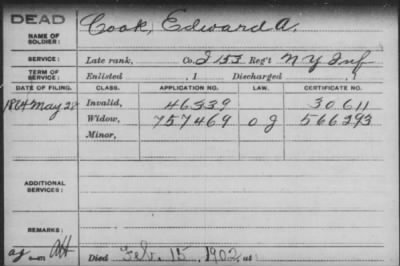 DEAD Cook, Edward A.
NAME OF SOLDIER:
SERVICE: Late rank, Co. I 153 Reg't N Y Inf
TERM OF SERVICE: Enlisted , 1 Discharged , 1
DATE OF FILING. CLASS. APPLICATION NO. LAW. CERTIFICATE NO.
1864 May 28 Invalid, 46339 30611
Widow, 757469 O G 566293
Minor,
ADDITIONAL SERVICES:
REMARKS:
Died Feb. 15, 1902, at